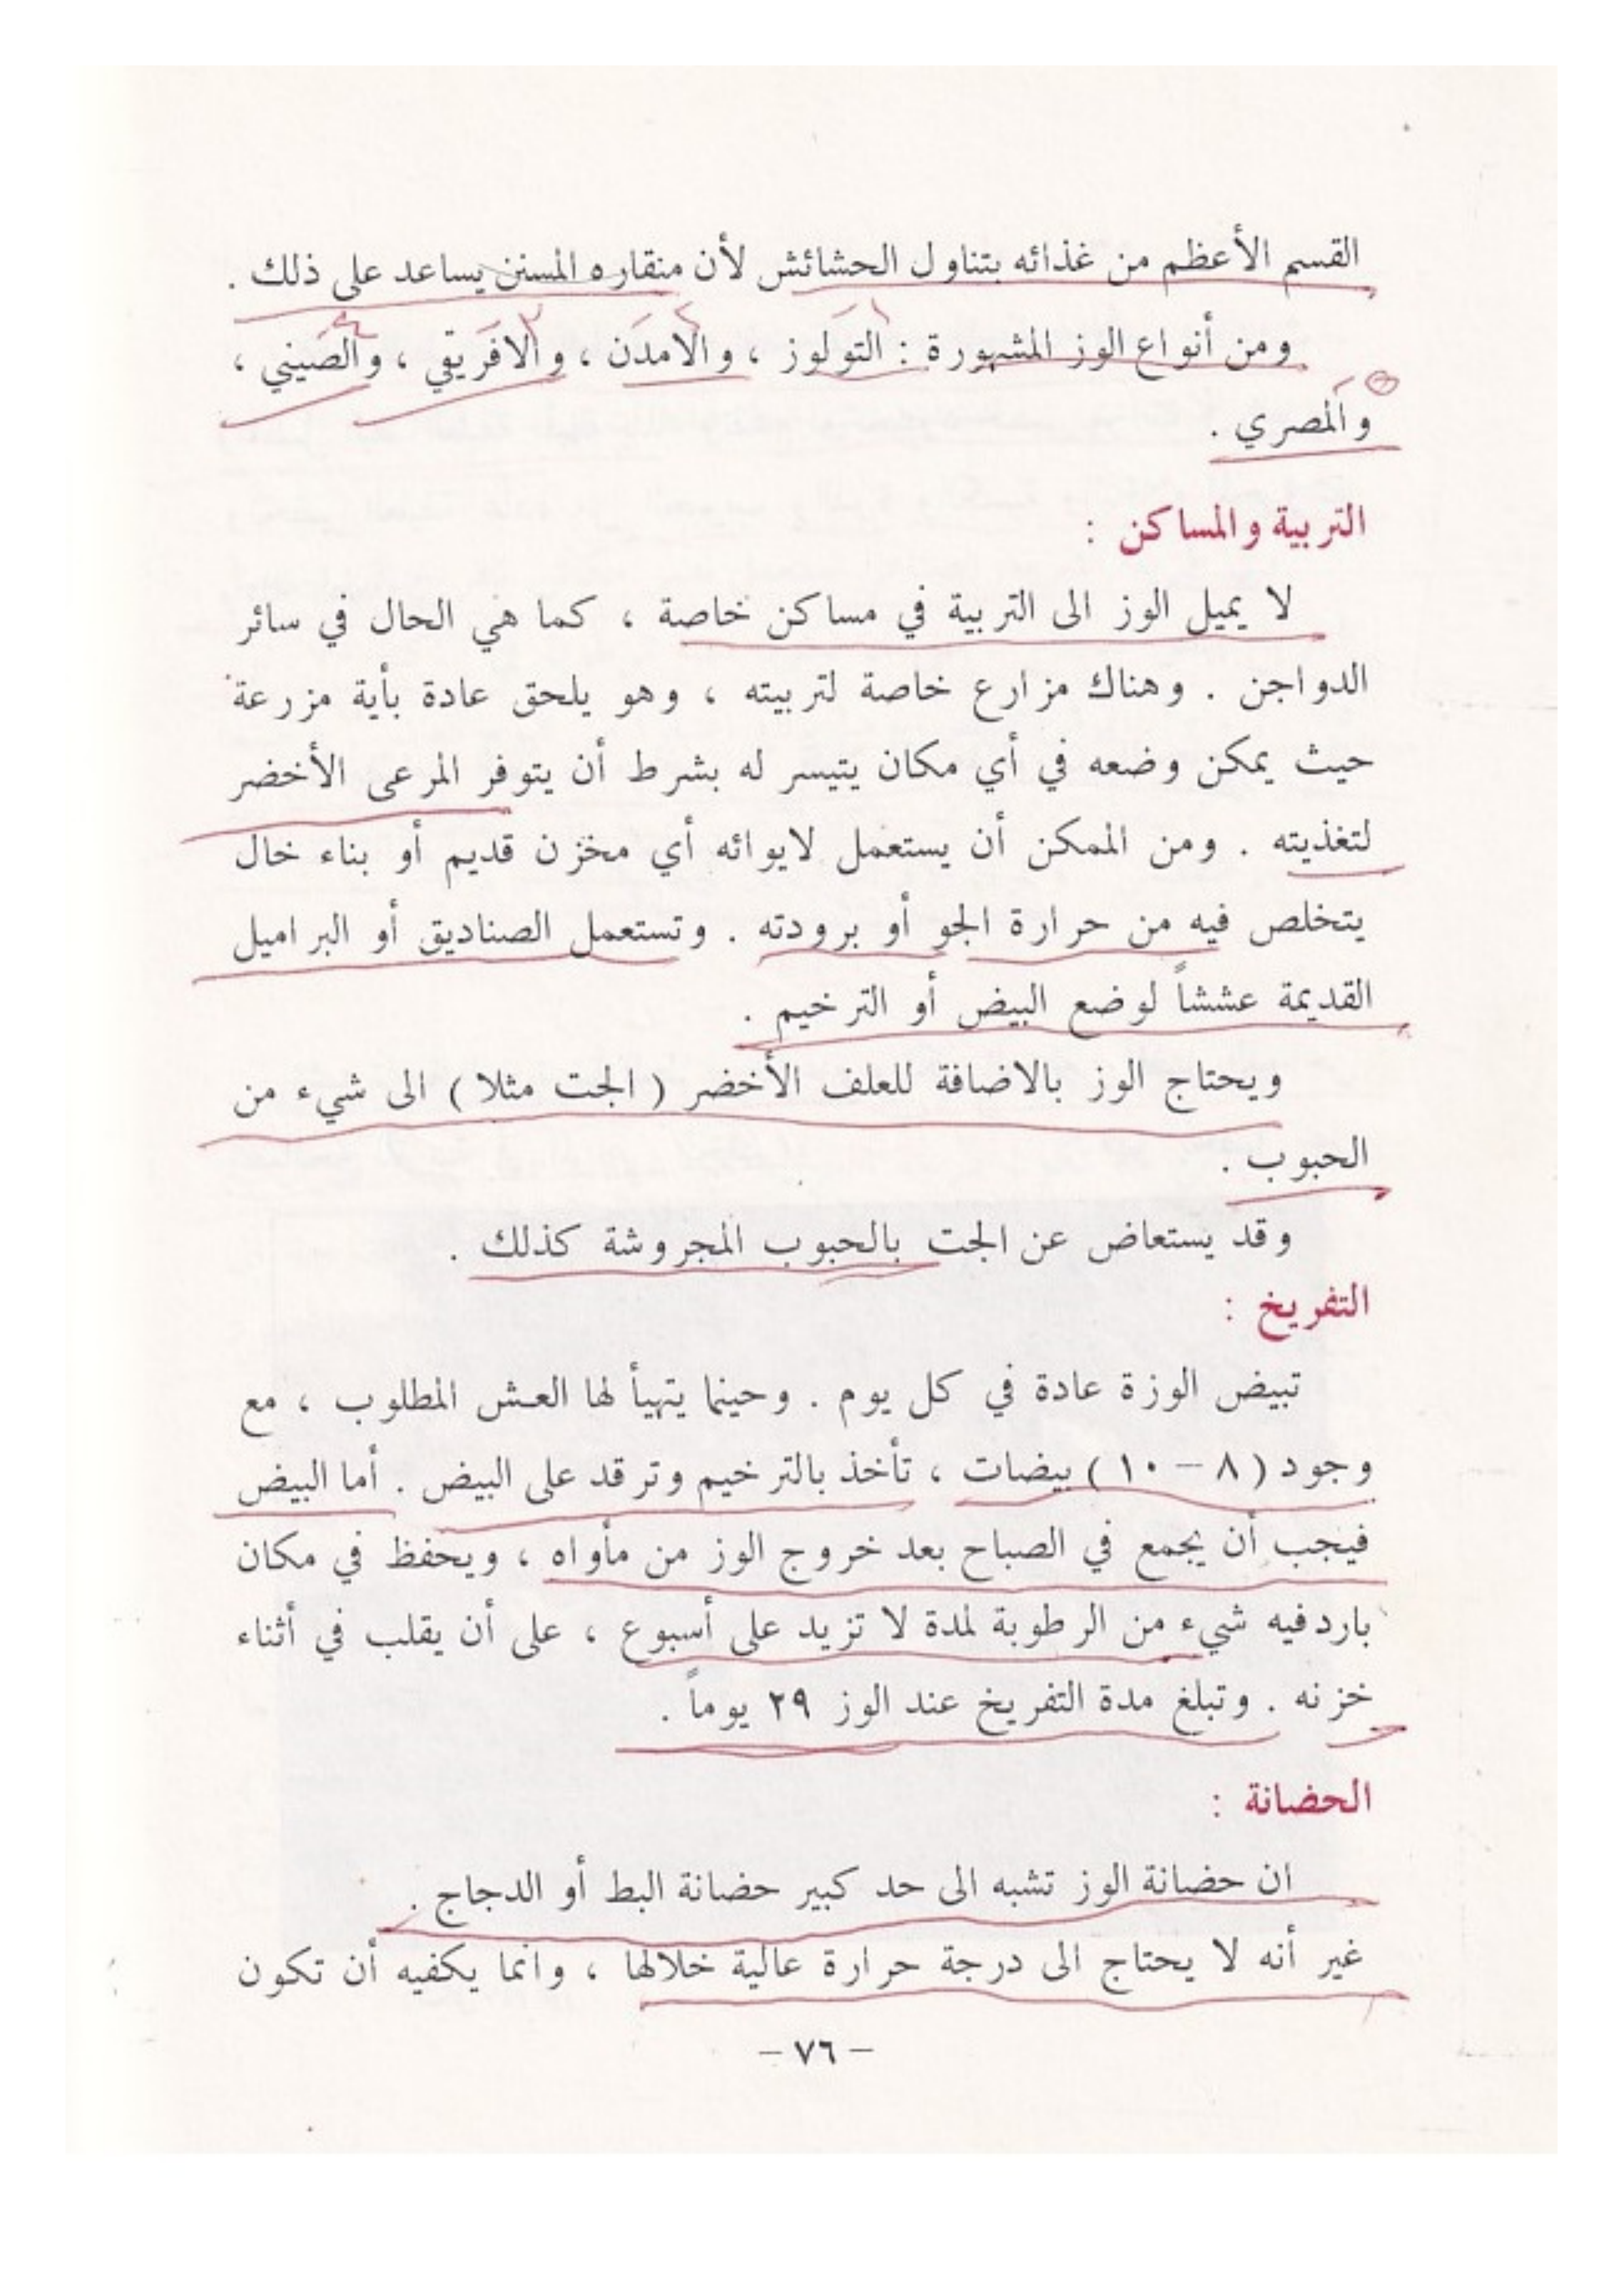 القسم الأعظم من غذائه بتناول الحشائش لأن منقاره المسنن يساعد على ذلك .
١ ٢ ٣ ٤
ومن أنواع الوز المشهورة : التولوز ، والامدن ، والافريقي ، والصيني ،
والمصري .
التربية والمساكن :
لا يميل الوز الى التربية في مساكن خاصة ، كما هي الحال في سائر
الدواجن . وهناك مزارع خاصة لتربيته ، وهو يلحق عادة بأية مزرعة
حيث يمكن وضعه في أي مكان يتيسر له بشرط أن يتوفر المرعى الأخضر
لتغذيته . ومن الممكن أن يستعمل لايوائه أي مخزن قديم أو بناء خال
يتخلص فيه من حرارة الجو أو برودته . وتستعمل الصناديق أو البراميل
القديمة عششاً لوضع البيض أو الترخيم .
ويحتاج الوز بالاضافة للعلف الأخضر ( الجت مثلا ) الى شيء من
الحبوب .
وقد يستعاض عن الجت بالحبوب المجروشة كذلك .
التفريخ :
تبيض الوزة عادة في كل يوم . وحينما يتهيأ لها العش المطلوب ، مع
وجود ( ٨ – ١٠ ) بيضات ، تأخذ بالترخيم وترقد على البيض . أما البيض
فيجب أن يجمع في الصباح بعد خروج الوز من مأواه ، ويحفظ في مكان
بارد فيه شيء من الرطوبة لمدة لا تزيد على أسبوع ، على أن يقلب في أثناء
خزنه . وتبلغ مدة التفريخ عند الوز ٢٩ يوماً .
الحضانة :
ان حضانة الوز تشبه الى حد كبير حضانة البط أو الدجاج .
غير أنه لا يحتاج الى درجة حرارة عالية خلالها ، وانما يكفيه أن تكون
– ٧٦ –